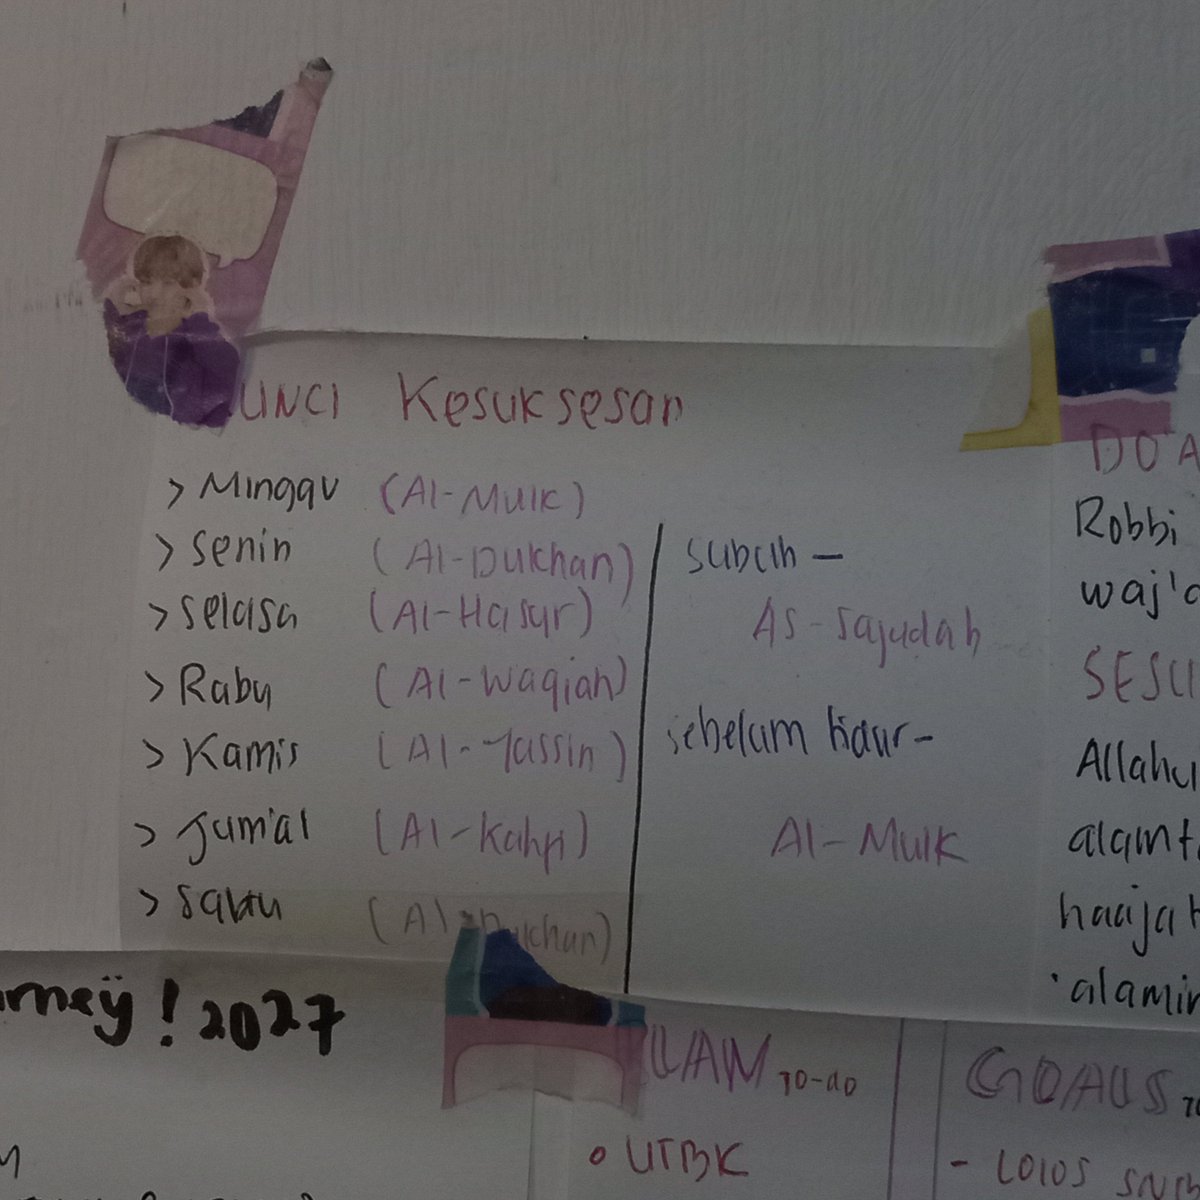 UNCI Kesuksesan
> Minggu (Al-Mulk)
> Senin (Al-Dukhan)
> Selasa (Al-Hasyr)
> Rabu (Al-Waqiah)
> Kamis (Al-Yassin)
> Jum'at (Al-Kahfi)
> Sabtu (Al-Dukhan)
Subuh -
As-Sajudah
Sebelum tidur -
Al-Mulk
DO'A
Robbi
waj'a
SESU
Allahu
alamt
haaja
'alamin
rney! 2027
LAN TO-do
• UTBK
GOALS
- Lolos